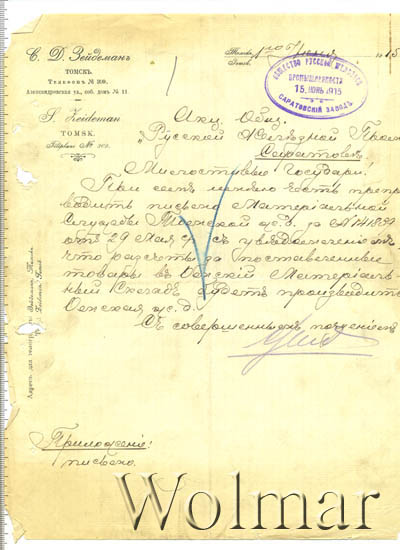 С. Д. Зейдеманъ
ТОМСКЪ.
Телефонъ № 209.
Александровская ул., соб. домъ № 11.
S. Zeideman
TOMSK.
Téléphone № 209.
Томскъ
Tomsk
ОБЩЕСТВО РУССКОЙ
ПРОМЫШЛЕННОСТИ
15. ИЮНЬ 1915
САРАТОВСКІЙ ЗАВОДЪ
Акц. Общ.
"Русской Желѣзной Пром
Саратовъ
Милостивые Государи!
При семъ имѣю честь препро
водить письмо Матеріальной
Службы Томской ж. д. за № 141839
отъ 29 Мая с/г съ увѣдомленіемъ
что расчетъ за поставленные
товары въ Омскій Матеріаль-
ный Складъ будетъ производить
Омская ж. д.
Съ совершеннымъ почтеніемъ
Приложеніе:
письмо.
Адресъ для телеграммъ: Зейдеману Томскъ.
Zeideman Tomsk
Wolmar